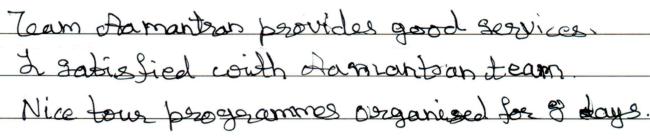 Team Aamantran provides good services.
I satisfied with Aamantran team.
Nice tour programmes organised for 8 days.